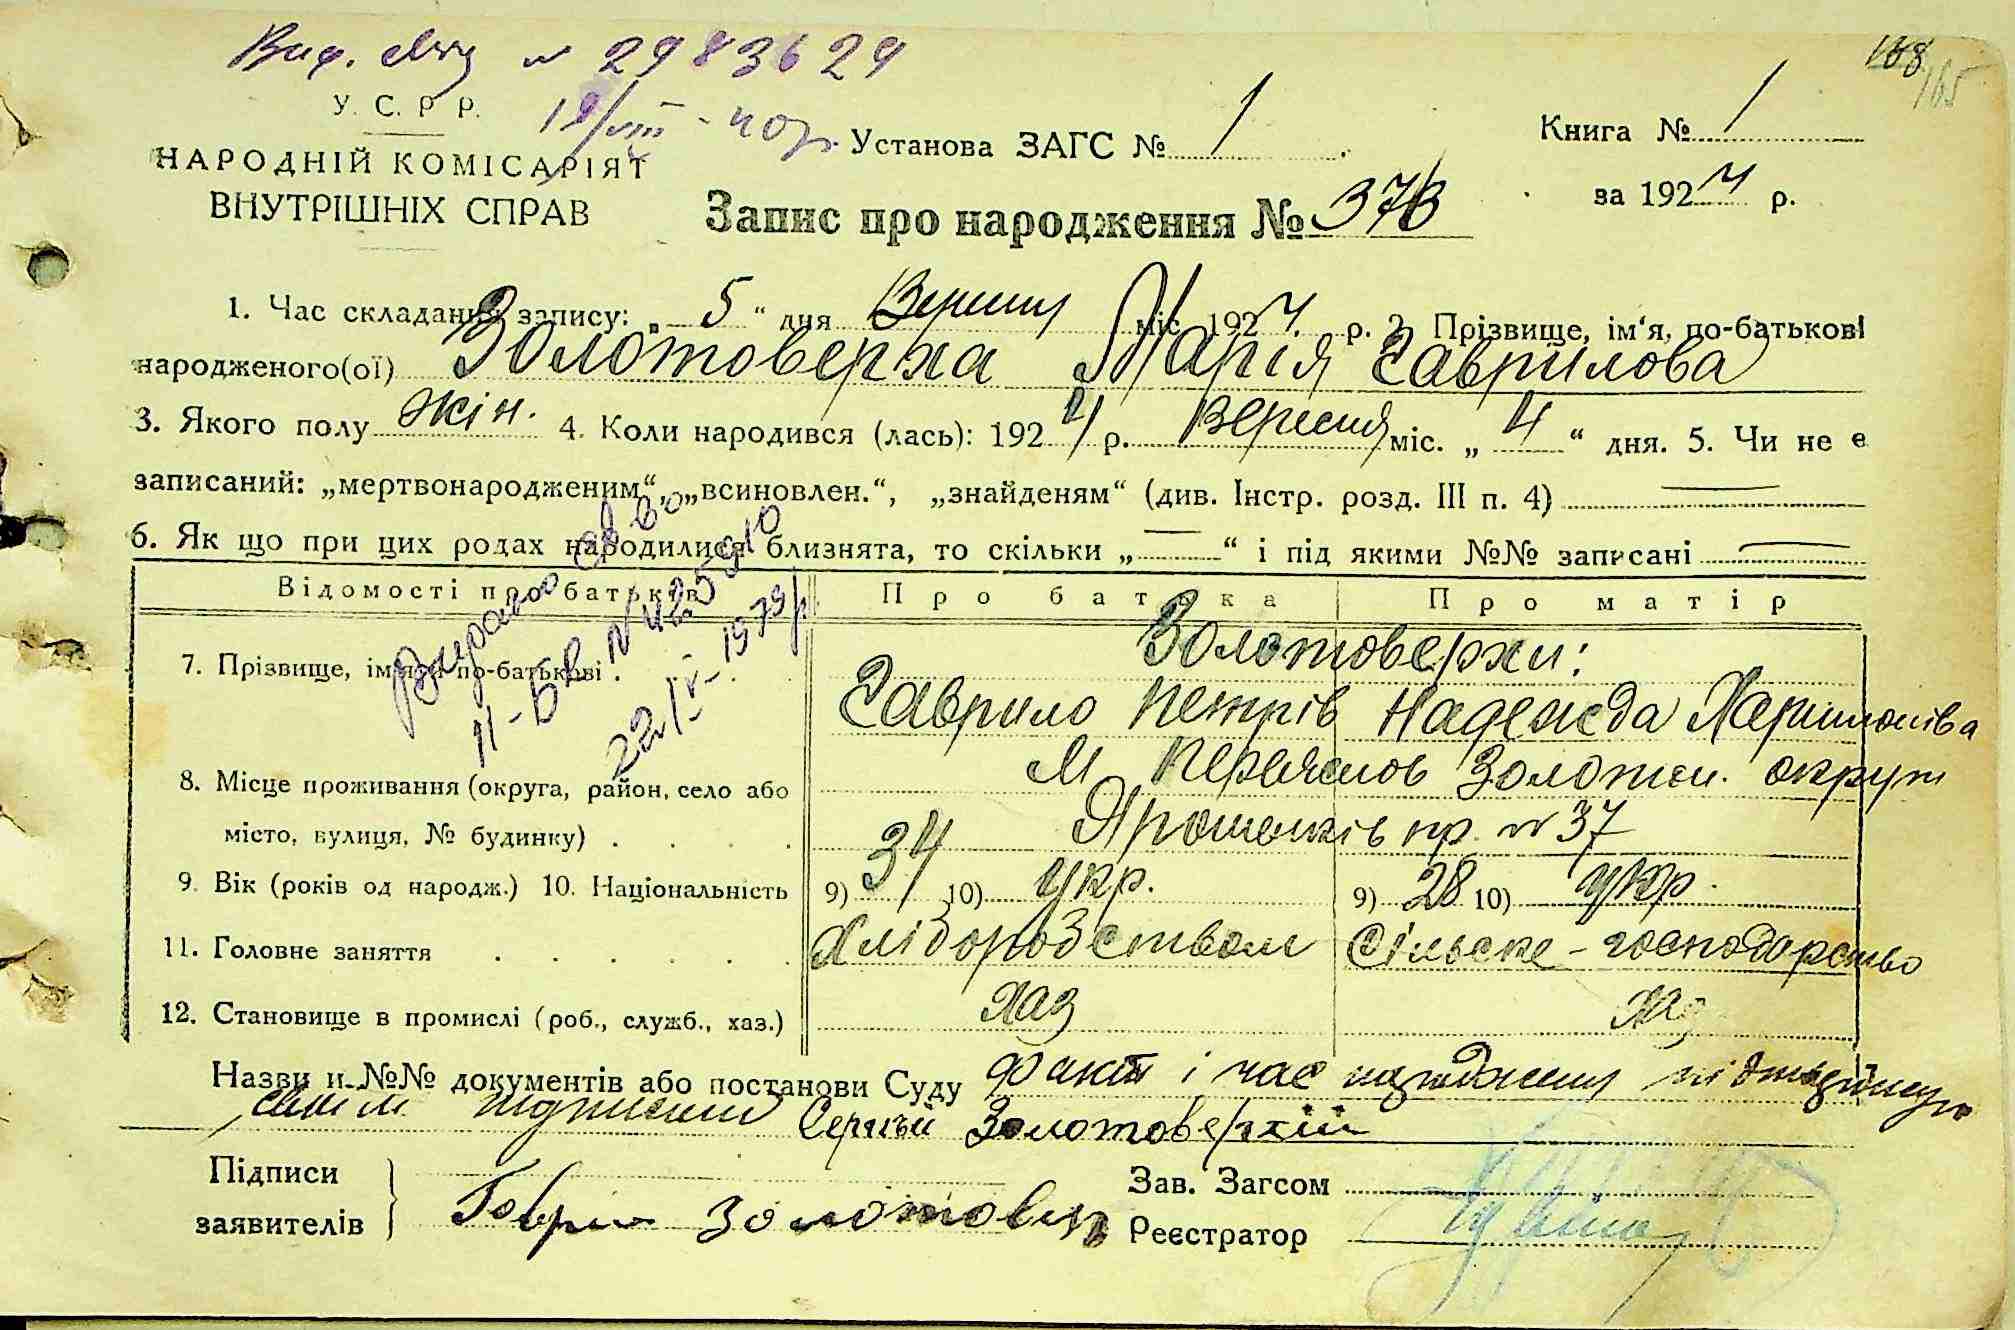 Вид. № 2983629
168
165
У. С. Р Р.
19/VIII - 40 р.
Установа ЗАГС № 1
Книга № 1
НАРОДНІЙ КОМІСАРІЯТ
ВНУТРІШНІХ СПРАВ
за 1924 р.
Запис про народження № 373
1. Час складання запису: „ 5 “ дня Вересня міс. 1924 р. 2. Прізвище, ім‘я, по-батькові
народженого(ої) Золотоверха Марія Гаврилова
3. Якого полу жін. 4. Коли народився (лась): 1924 р. вересня міс. „ 4 “ дня. 5. Чи не є
записаний: „мертвонародженим“, „всиновлен.“, „знайденям“ (див. Інстр. розд. III п. 4) —
6. Як що при цих родах народилися близнята, то скільки „ — “ і під якими №№ записані —
Відомості про батьків
Про батька
Про матір
Видано св во
II-БК № 425910
22/IV-1979р.
7. Прізвище, ім'я та по-батькові .
Золотоверхи:
Гаврило Петрів Надежда Харитонівa
8. Місце проживання (округа, район, село або
місто, вулиця, № будинку) . . . .
м Переяслов Золотон. округи
пр. № 37
9. Вік (років од народж.) 10. Національність
9) 34 10) укр.
9) 28 10) укр.
11. Головне заняття . . . . . .
Хліборобством
Сільске-господарство
12. Становище в промислі (роб., служб., хаз.)
хаз
хаз
Назви и №№ документів або постанови Суду Факт і час народження
своїм підписом Сергѣй Золотоверхий
Підписи
заявителів
Зав. Загсом
Реєстратор